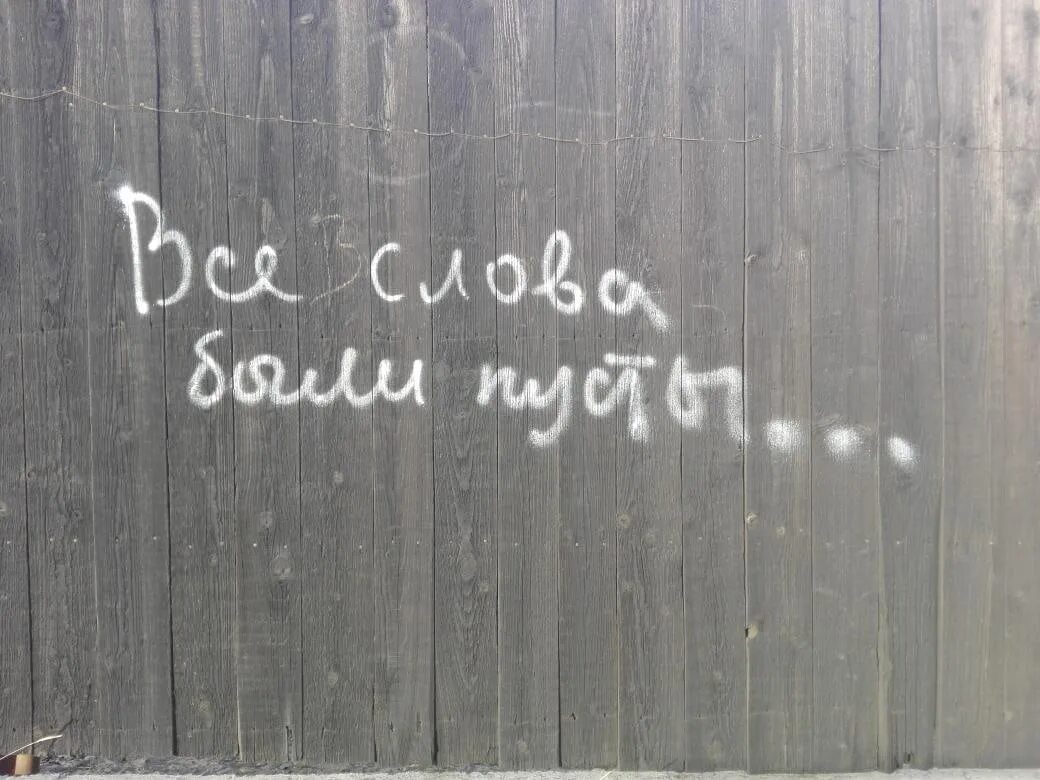 Все слова
были пусты...